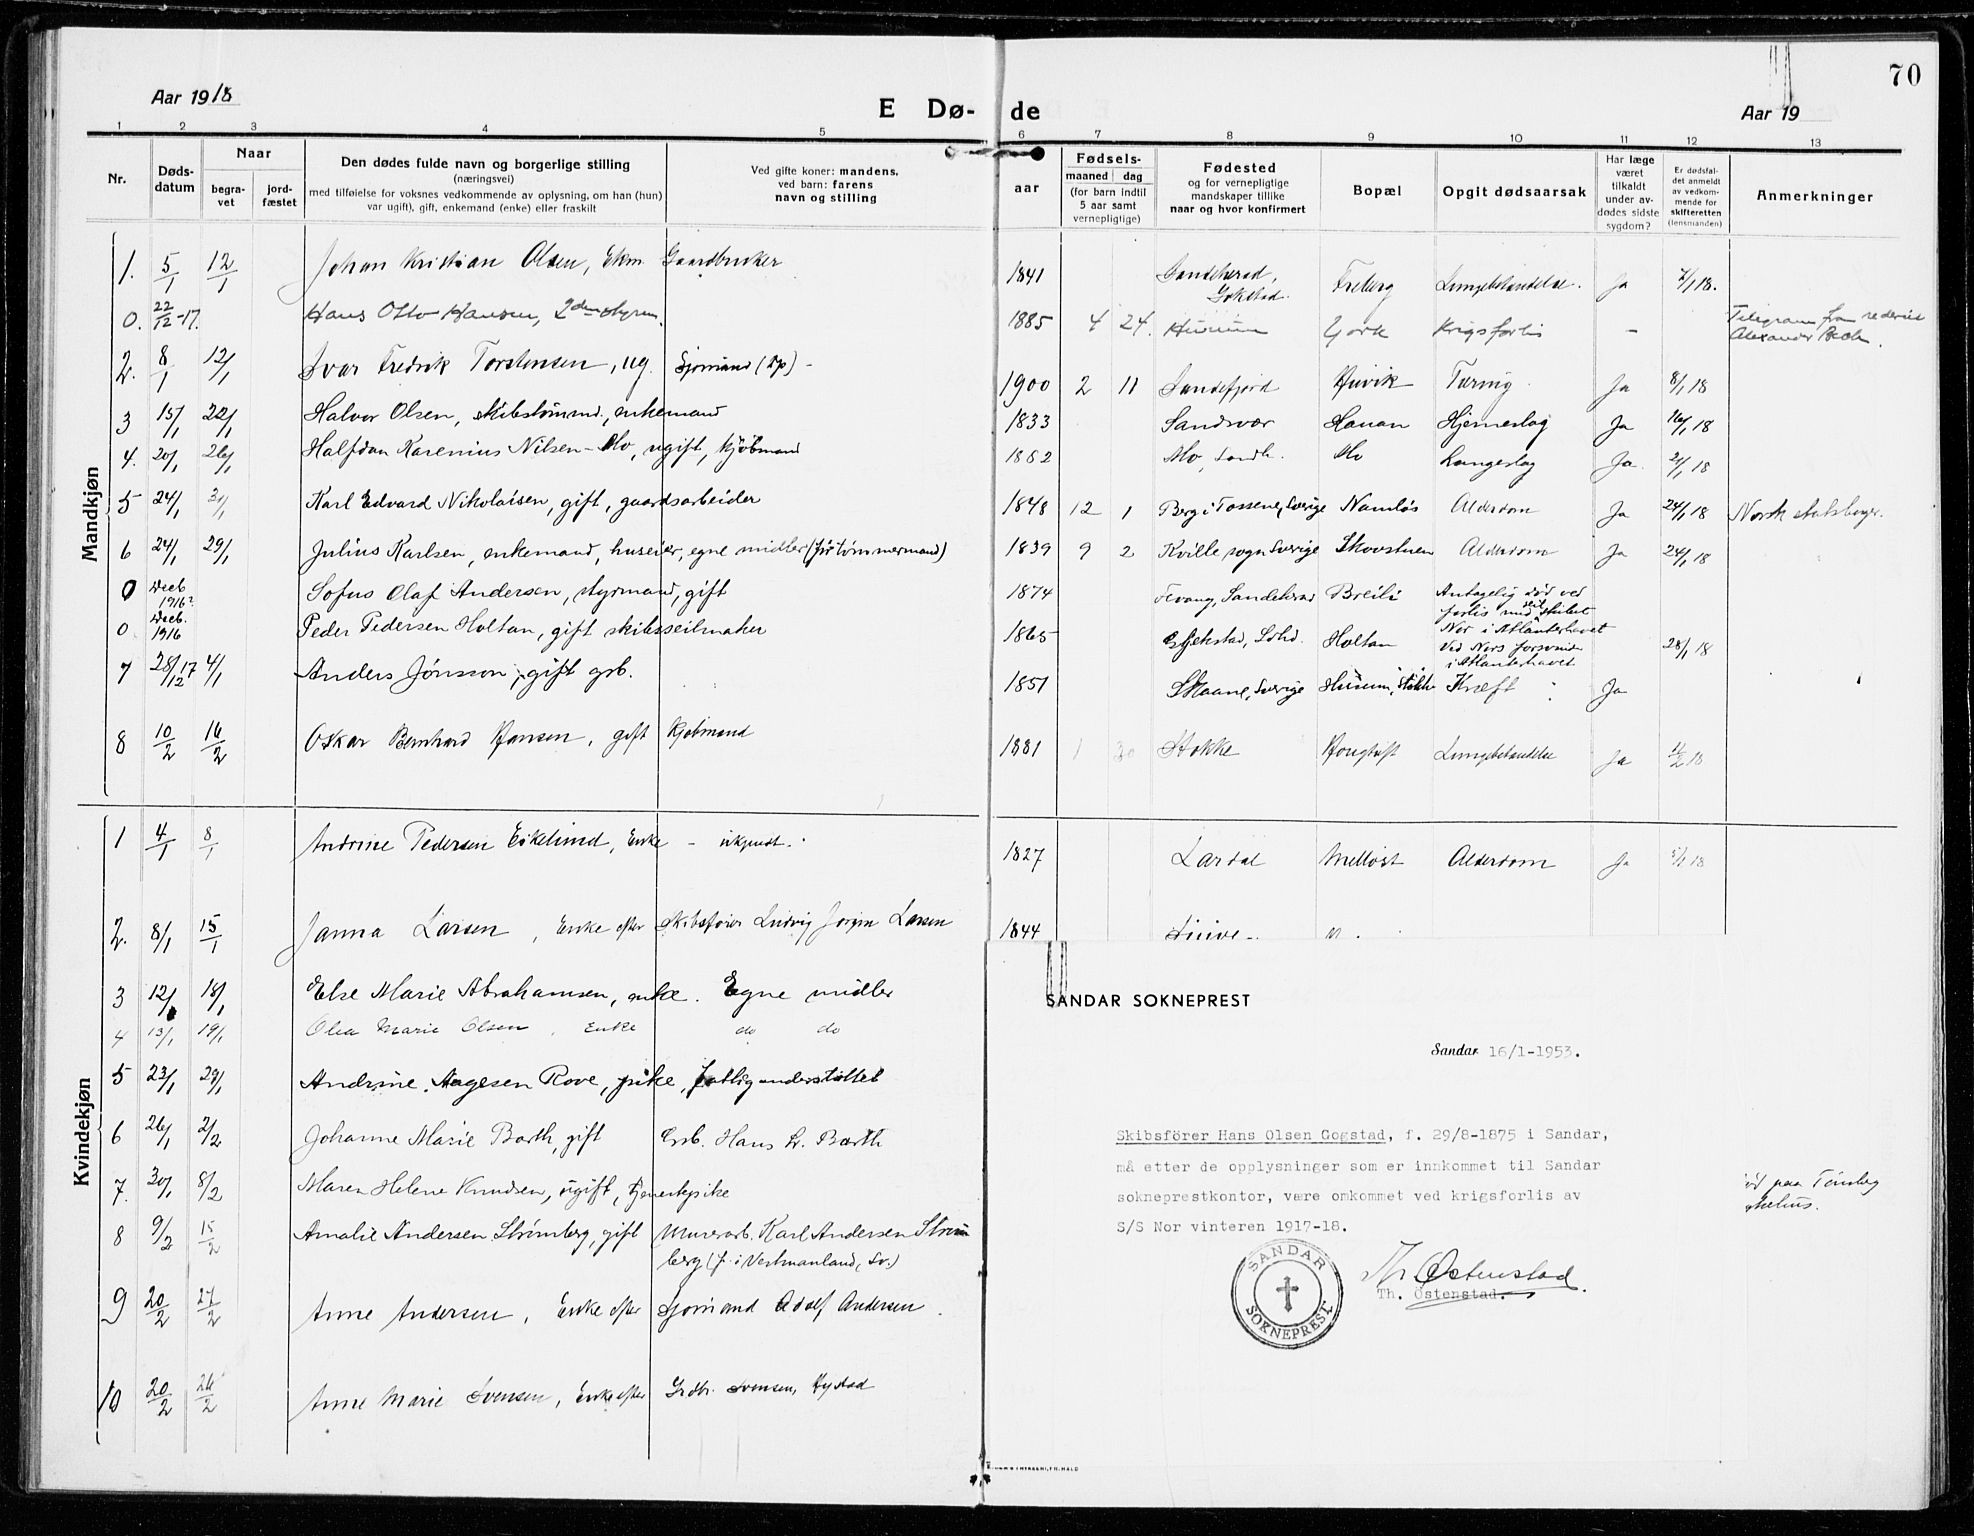 Aar 1918
E Dø-
de
Aar 19
70
1 2 3 4 5 6 7 8 9 10 11 12 13
Nr.
Døds-
datum
Naar
begra-
vet
jord-
fæstet
Den dødes fulde navn og borgerlige stilling
(næringsvei)
med tilføielse for voksnes vedkommende av oplysning, om han (hun)
var ugift), gift, enkemand (enke) eller fraskilt
Ved gifte koner: mandens,
ved barn: farens
navn og stilling
aar
Fødsels-
maaned dag
(for barn indtil
5 aar samt
vernepligtige)
Fødested
og for vernepligtige
mandskaper tillike
naar og hvor konfirmert
Bopæl
Opgit dødsaarsak
Har læge
været
tilkaldt
under av-
dødes sidste
sygdom?
Er dødsfal-
det anmeldt
av vedkom-
mende for
skifteretten
(lensmanden)
Anmerkninger
Mandkjøn
1. 5/1 12/1 Johan Kristian Olsen, Ekm Gaardbruker 1841 Sandeherad, Gokstad. Freberg Lungebetændelse. Ja 7/1 18.
0. 22/12-17. Hans Otto Hansen, 2den styrm. 1885 4 24. Husum York Krigsforlis – Telegram fra rederiet
Alexander Bech.
2. 8/1 12/1 Ivar Fredrik Torstensen, ug. Sjømand (Dp) - 1900 2 11 Sandefjord Huvik Tæring. Ja 8/1 18
3 15/1 22/1 Halvor Olsen, skibstømmd., enkemand 1833 Sandsvær Hauan Hjerneslag Ja 16/1 18
4. 20/1 26/1 Halfdan Karenius Nilsen-Mo, ugift, kjøbmand 1862 Mo, Sandh. Mo Lungeslag Ja. 21/1 18
5 24/1 31/1 Karl Edvard Nikolaisen, gift, gaardsarbeider 1848 12 1 Berg i Tossene, Sverige Namløs Alderdom Ja 24/1 18 Norsk statsborger.
6 24/1 29/1 Julius Karlsen, enkemand, huseier, egne midler (før tømmermand) 1839 9 2 Kville sogn Sverige Skovstuen Alderdom Ja 24/1 18
0 Decb. 1916? Sofus Olaf Andersen, styrmand, gift 1874 Fevang, Sandeherad Breili Antagelig død ved
forlis med skibet
Nor i Atlanterhavet
0. Decb. 1916 Peder Pedersen Holtan, gift skibsseilmaker 1865 Gjekstad, Sohd. Holtan Ved Nors forsvinden
i Atlanterhavet 28/1 18
7 28/12 17 4/1 Anders Jønsson, gift grb. 1851 Skaane, Sverige Husum, Stokke Kræft Ja
8 10/2 16/2 Oskar Bernhard Hansen, gift Kjøbmand 1881 1 30 Stokke Haugtuft Lungebetændelse Ja 11/2 18
Kvindekjøn
1 4/1 8/1 Andrine Pedersen Eikelund, Enke – ukjendt. 1827 Lardal Melløst Alderdom Ja 5/1 18
2. 8/1 15/1 Janna Larsen, Enke efter Skibsfører Ludvig Jørgen Larsen 1844
3 12/1 18/1 Else Marie Abrahamsen, enke. Egne midler
4 13/1 19/1 Olea Marie Olsen, Enke do do
5 23/1 29/1 Andrine Aagesen Rove, pike, fattigunderstøttet
6 26/1 2/2 Johanne Marie Barth, gift Grb. Hans L. Barth
7. 30/1 8/2 Maren Helene Knudsen, ugift, tjenestepike paa Tønsberg
8 9/2 15/2 Amalie Andersen Strømberg, gift Murerarb. Karl Andersen Strøm
berg (f. i Vestmanland, Sv.)
9 20/2 27/2 Anne Andersen, Enke efter Sjømand Adolf Andersen.
10 20/2 26/2 Anne Marie Svensen, Enke efter Grdbr. Svensen, Hystad
SANDAR SOKNEPREST
Sandar 16/1-1953.
Skibsförer Hans Olsen Gogstad, f. 29/8-1875 i Sandar,
må etter de opplysninger som er innkommet til Sandar
sokneprestkontor, være omkommet ved krigsforlis av
S/S Nor vinteren 1917-18.
SANDAR
SOKNEPREST
Th. Østenstad.
Th. Østenstad.